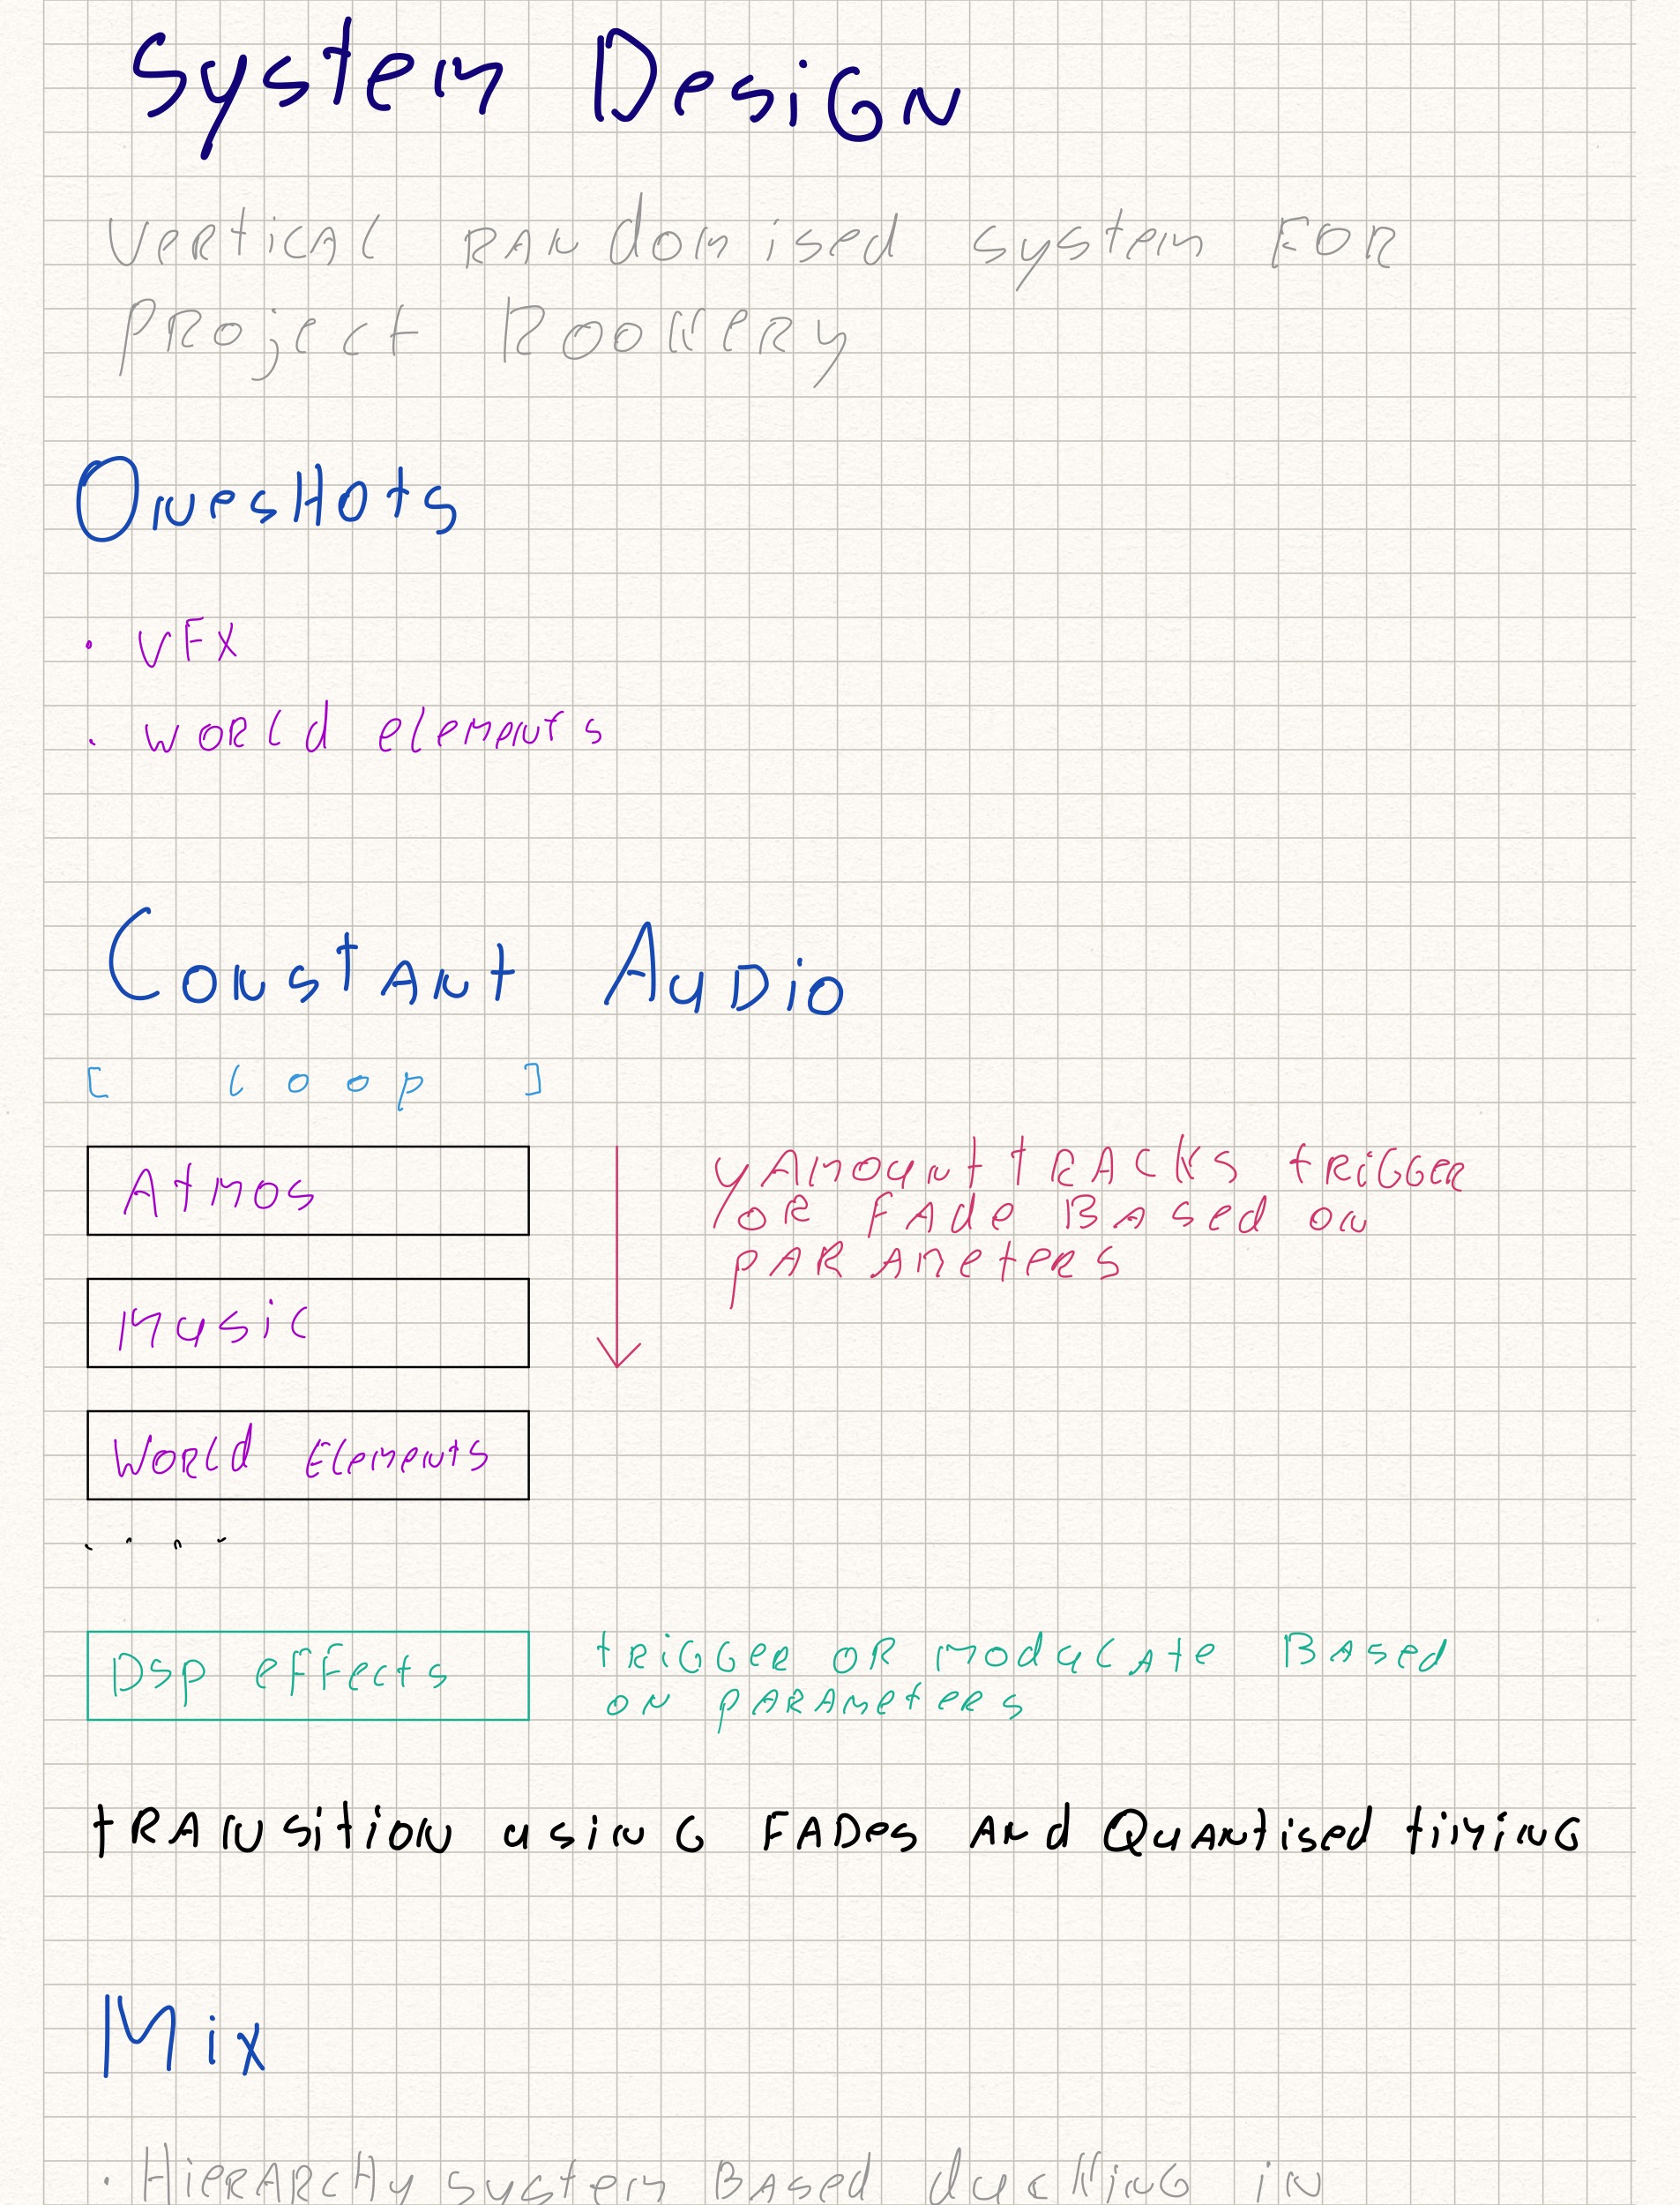 System Design
Vertical Randomised system for
Project Rookery
Oneshots
• VFX
• World elements
Constant Audio
[ loop ]
Atmos
y Amount tracks trigger
/or fade based on
parameters
Music
World Elements
....
Dsp effects
trigger or modulate based
on parameters
transition using fades and Quantised timing
Mix
• Hierarchy system based ducking in